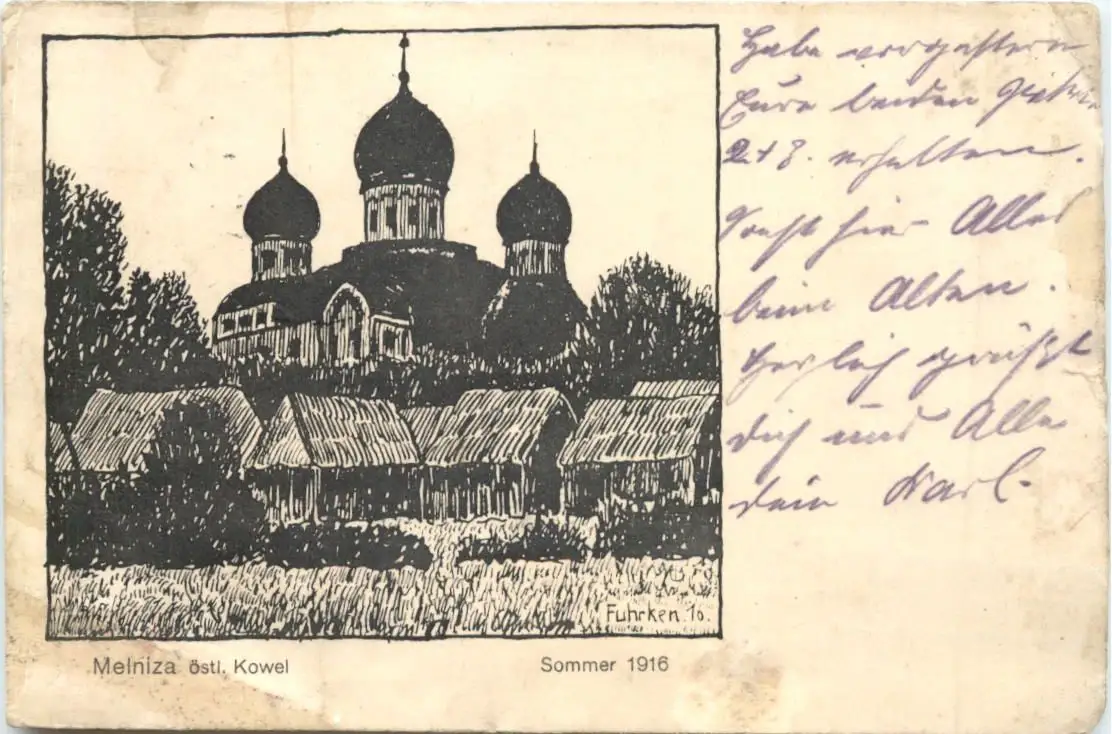 Fuhrken. 16.
Melniza östl. Kowel
Sommer 1916
Habe vorgestern
Eure beiden
2 + 8. erhalten.
hier Alles
beim Alten.
Herzlich grüßt
dich und Alle
dein Karl.